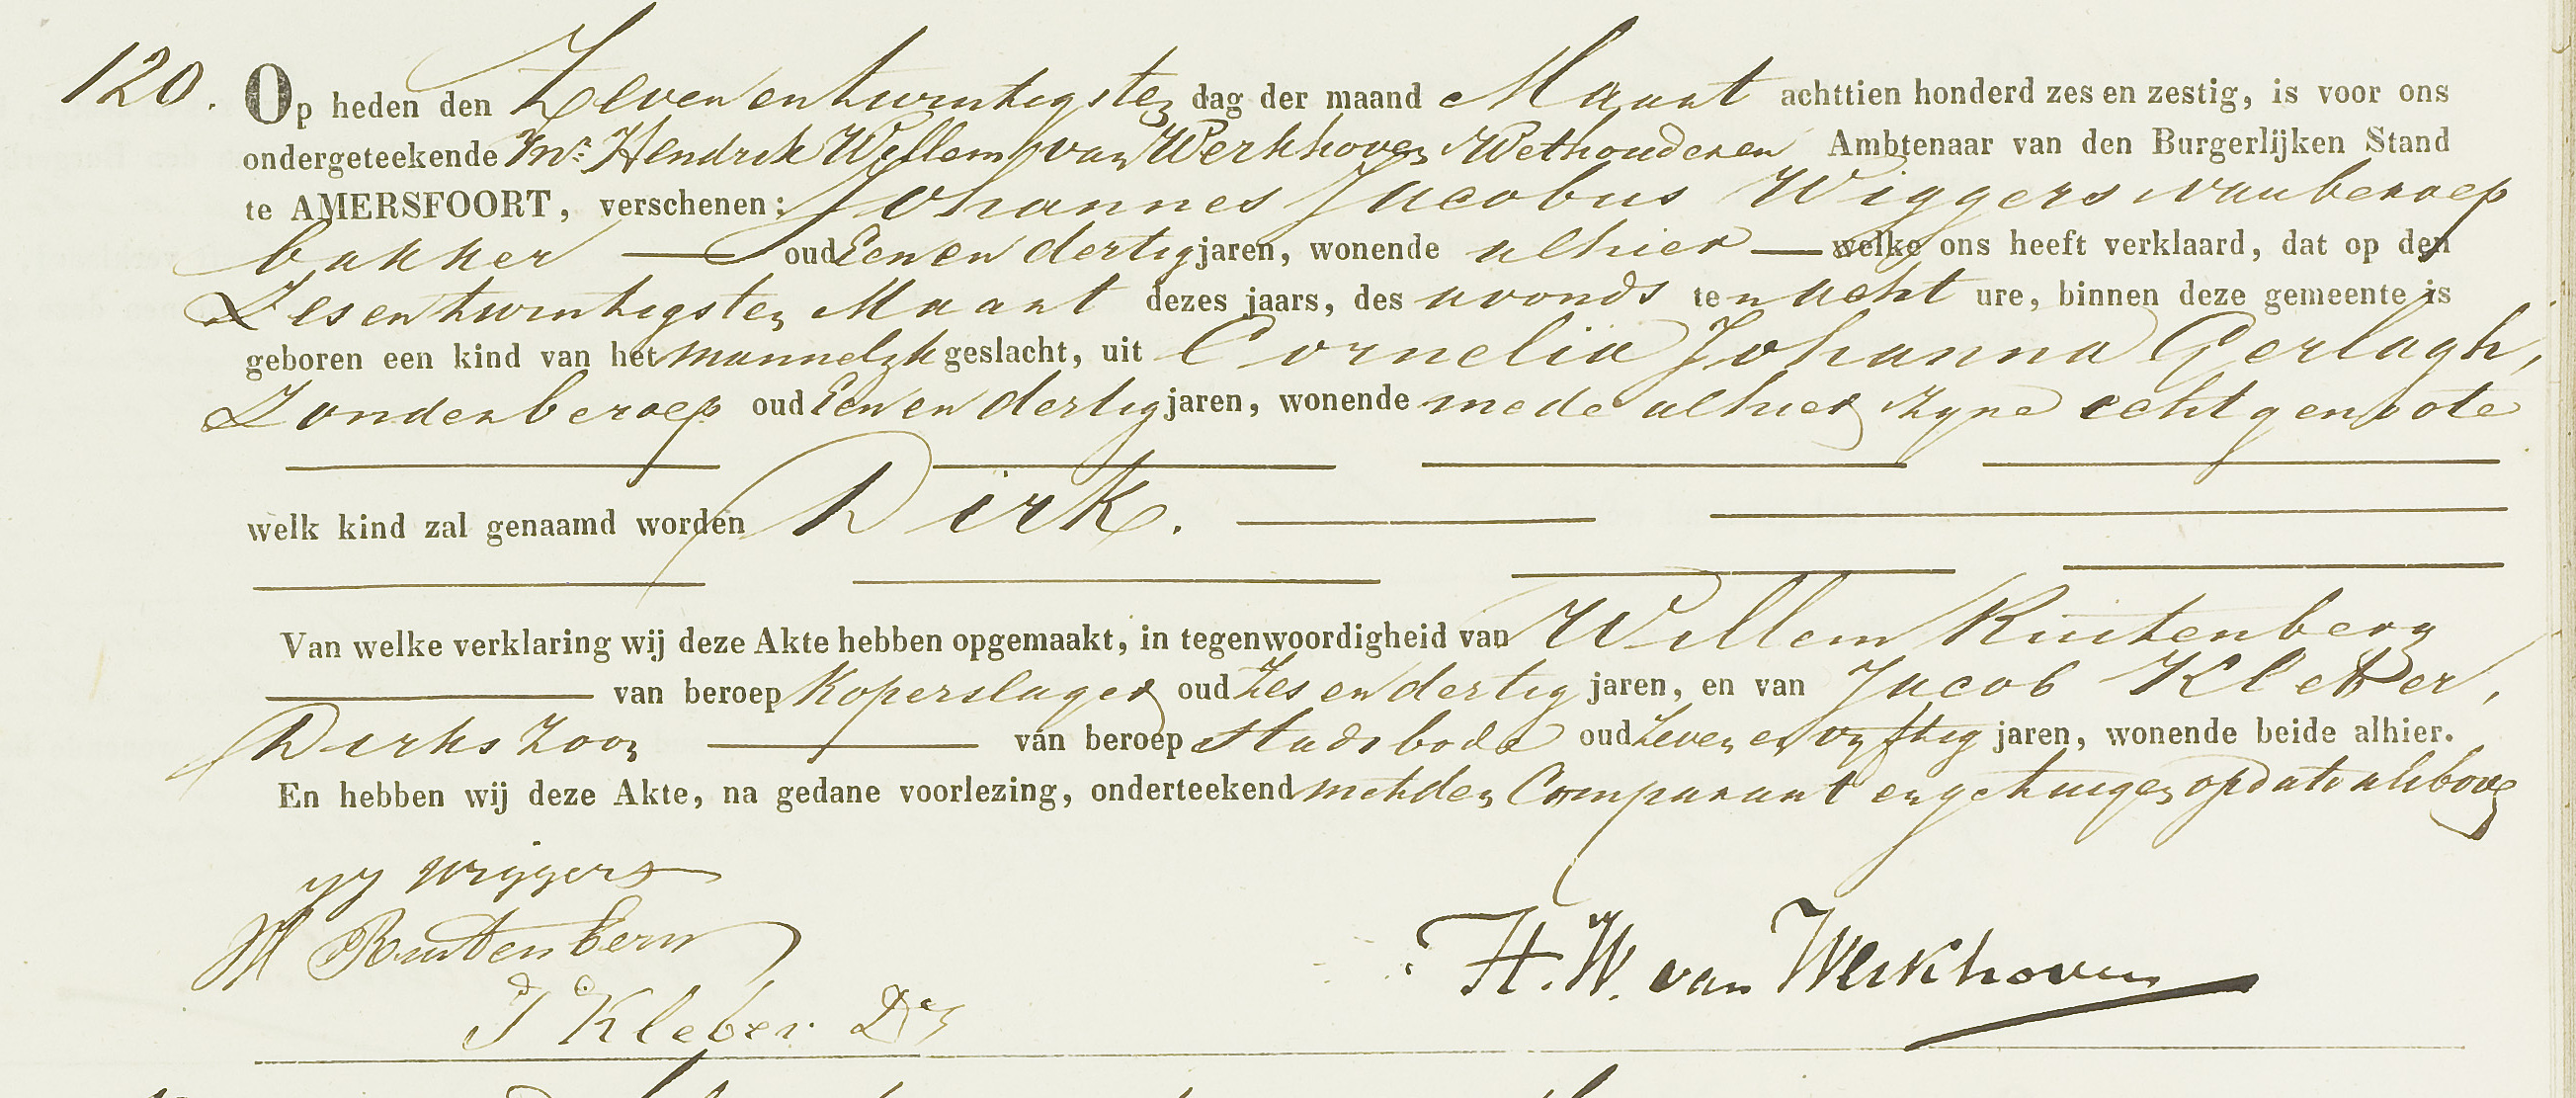 120. Op heden den Zevenentwintigsten dag der maand Maart achttien honderd zes en zestig, is voor ons
ondergeteekende Mr. Hendrik Willem van Werkhoven Wethouder en Ambtenaar van den Burgerlijken Stand
te AMERSFOORT, verschenen: Johannes Jacobus Wiggers van beroep
bakker oud Een en dertig jaren, wonende alhier welke ons heeft verklaard, dat op den
Zesentwintigsten Maart dezes jaars, des avonds ten acht ure, binnen deze gemeente is
geboren een kind van het mannelijk geslacht, uit Cornelia Johanna Gerlagh,
Zonder beroep oud Een en dertig jaren, wonende mede alhier zyne echtgenoote
welk kind zal genaamd worden Dirk.
Van welke verklaring wij deze Akte hebben opgemaakt, in tegenwoordigheid van Willem Ruitenberg
van beroep Koperslager oud Zes en dertig jaren, en van Jacob Kleber,
Dirks Zoon van beroep stadsbode oud Zeven en vyftig jaren, wonende beide alhier.
En hebben wij deze Akte, na gedane voorlezing, onderteekend met den Comparant en getuigen op dato als boven
JJ Wiggers
W Ruitenberg
J Kleber Dz
H. W. van Werkhoven